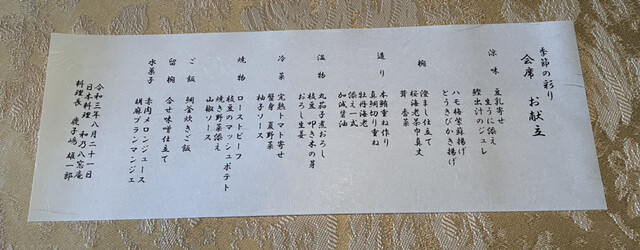 季節の彩り
会席　お献立
涼味　豆乳寄せ
生うに添え
鰹出汁のジュレ
ハモ梅紫蘇揚げ
とうきびかき揚げ
椀　澄まし仕立て
桜海老茶巾真丈
茸　香菜
造り　本鮪重ね作り
真鯛切り重ね
牡丹海老
添え一式
加減醤油
温物　丸茄子煮おろし
枝豆　叩き木の芽
おろし生姜
冷菜　完熟トマト寄せ
蟹身　夏野菜
柚子ソース
焼物　ローストビーフ
枝豆のマッシュポテト
焼き野菜添え
山椒ソース
ご飯　鯛釜炊きご飯
留椀　合せ味噌仕立て
水菓子　赤肉メロンジュース
胡麻ブランマンジェ
令和三年八月二十一日
日本料理　和乃八窓庵
料理長　鹿子嶋　雄一郎